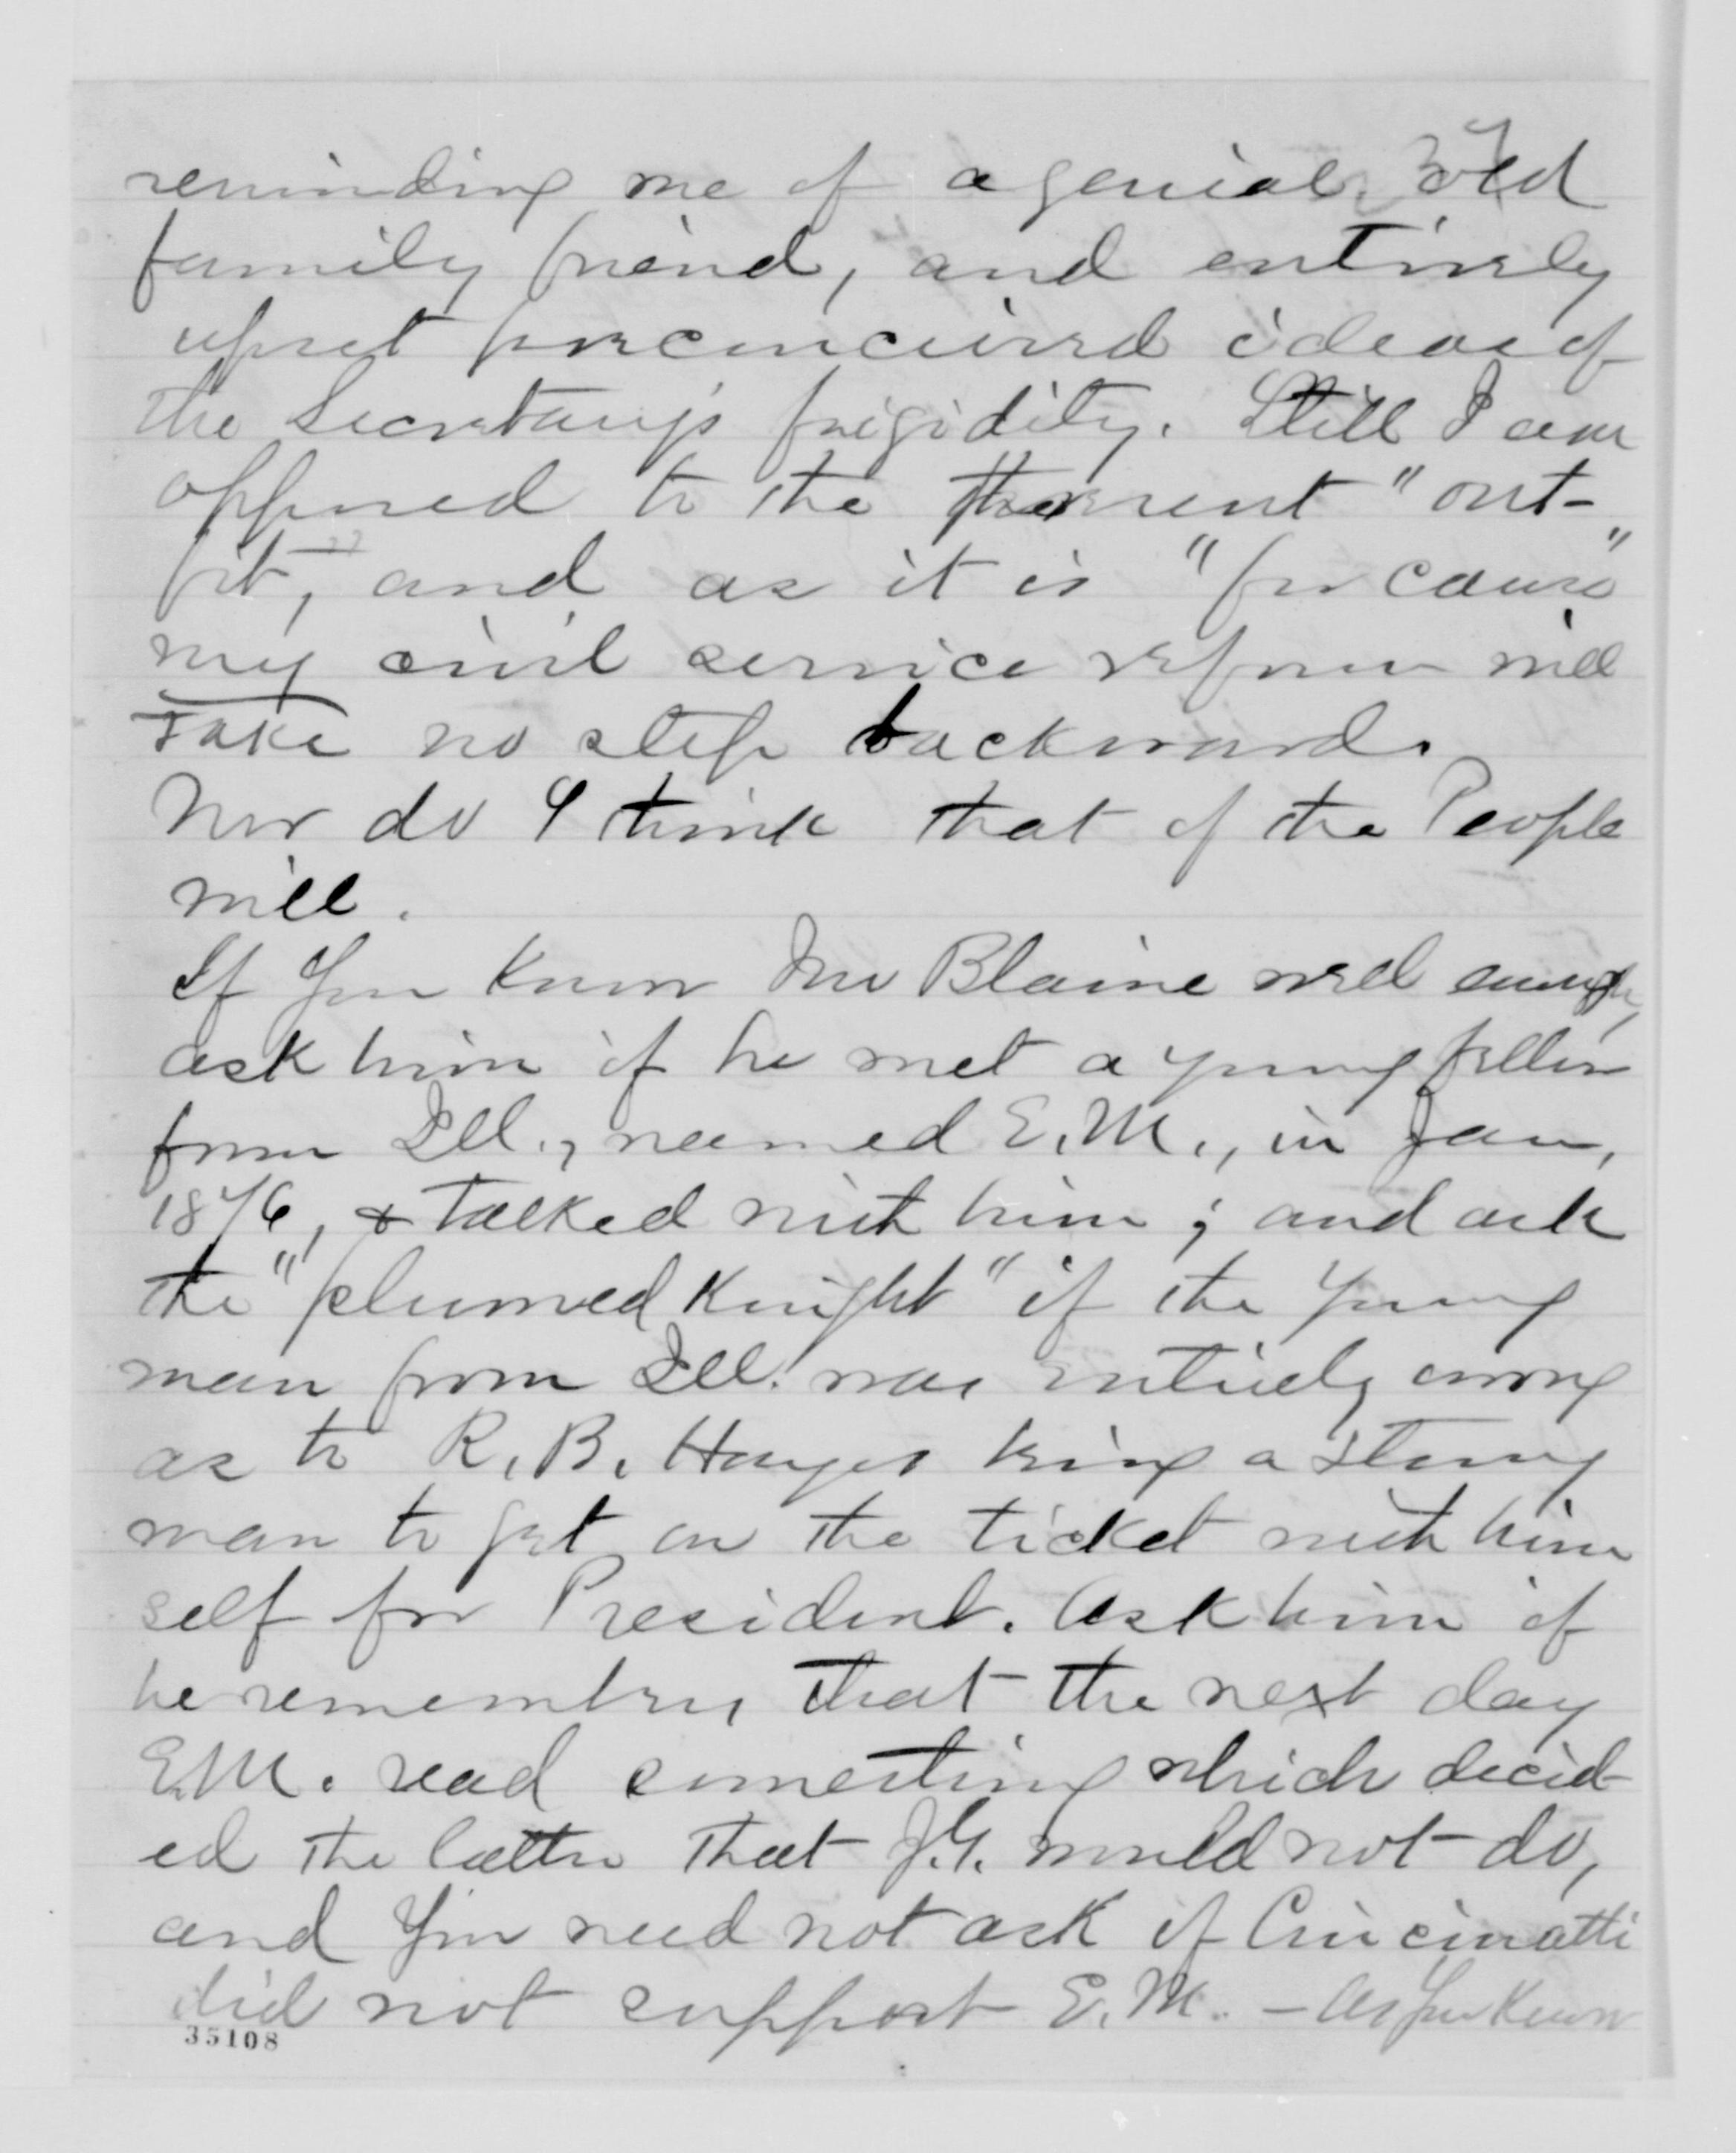 reminding me of a genial old
family friend, and entirely
upset preconceived ideas of
the Secretary's frigidity. Still I am
opposed to the present "out-
fit", and as it is "for cause"
my civil service reform will
take no step backward.
Nor do I think that of the People
will.
If you know Mr Blaine well enough,
ask him if he met a young fellow
from Ill., named E.M., in Jan,
1876, & talked with him; and ask
the "plumed Knight" if the young
man from Ill. was entirely wrong
as to R.B. Hayes being a strong
man to get on the ticket with him
self for President. Ask him if
he remembers that the next day
E.M. read something which decid-
ed the latter that J.G. would not do,
and you need not ask if Cincinatti
did not support E.M. - as you know
35108